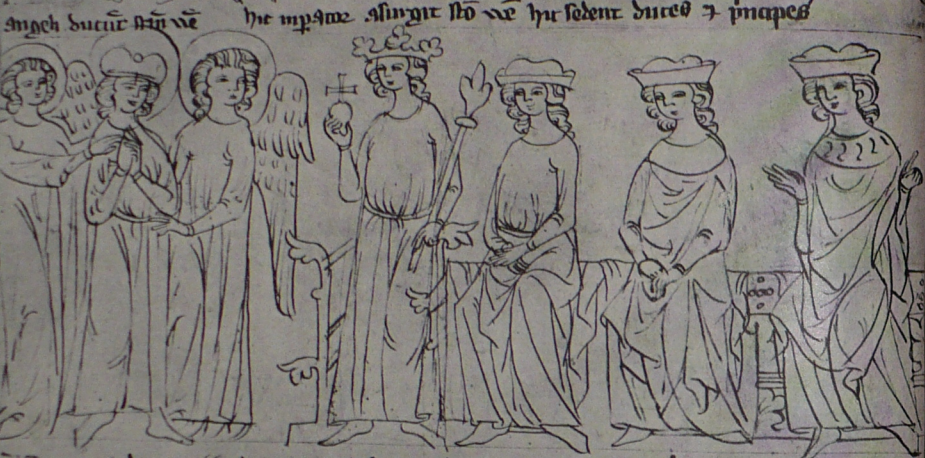 angeli ducūt stm̄ wē hic inꝑator assurgit stō wē hic sedent duces ⁊ pͥncipes